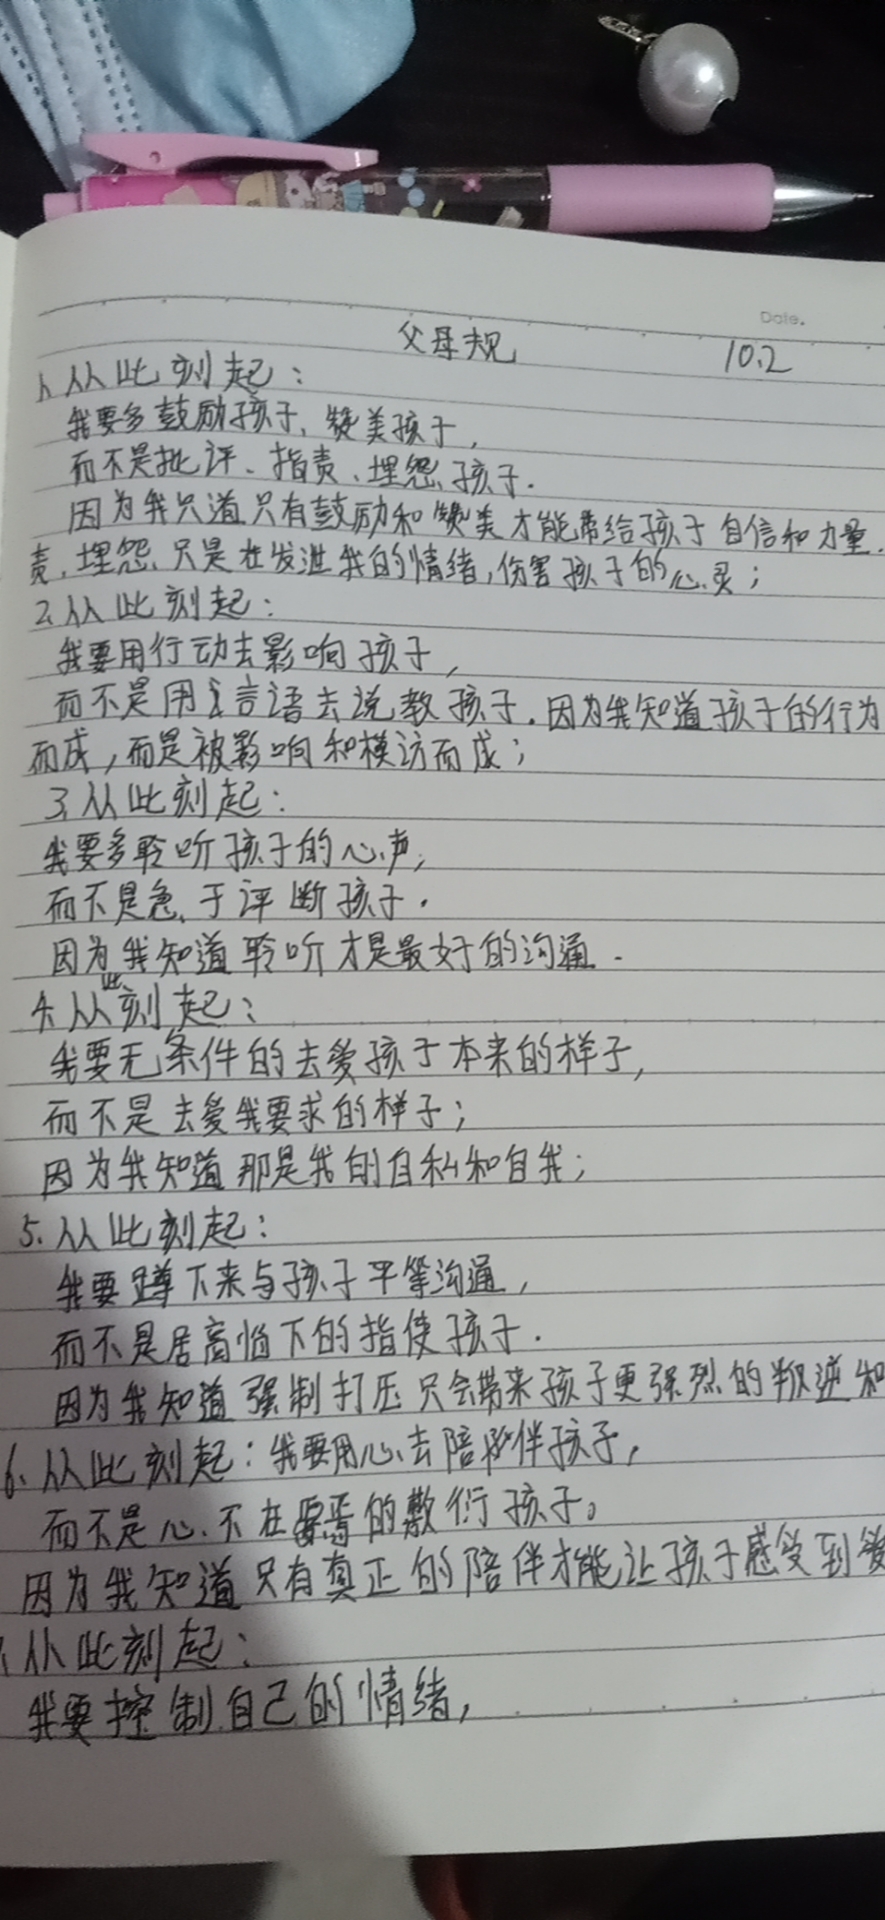 Date.
父母规 10.2
1.从此刻起：
我要多鼓励孩子、赞美孩子，
而不是批评、指责、埋怨孩子.
因为我只道只有鼓励和赞美才能带给孩子自信和力量.
责,埋怨、只是在发泄我的情绪,伤害孩子的心灵；
2.从此刻起：
我要用行动去影响孩子，
而不是用言语去说教孩子.因为我知道孩子的行为
而成，而是被影响和模访而成；
3.从此刻起：
我要多聆听孩子的心声，
而不是急于评断孩子.
因为我知道聆听才是最好的沟通.
4.从此刻起：
我要无条件的去爱孩子本来的样子，
而不是去爱我要求的样子；
因为我知道那是我的自私和自我；
5.从此刻起：
我要蹲下来与孩子平等沟通，
而不是居高临下的指使孩子.
因为我知道强制打压只会带来孩子更强烈的叛逆和
6.从此刻起：我要用心去陪伴孩子，
而不是心不在焉的敷衍孩子。
因为我知道只有真正的陪伴才能让孩子感受到爱
从此刻起：
我要控制自己的情绪，